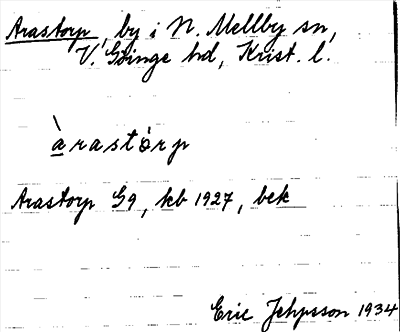 Arastorp, by i N. Mellby sn,
V. Göinge hd, Krist. l.
àrastòrp
Arastorp G9, kb 1927, bek
Eric Jehpsson 1934